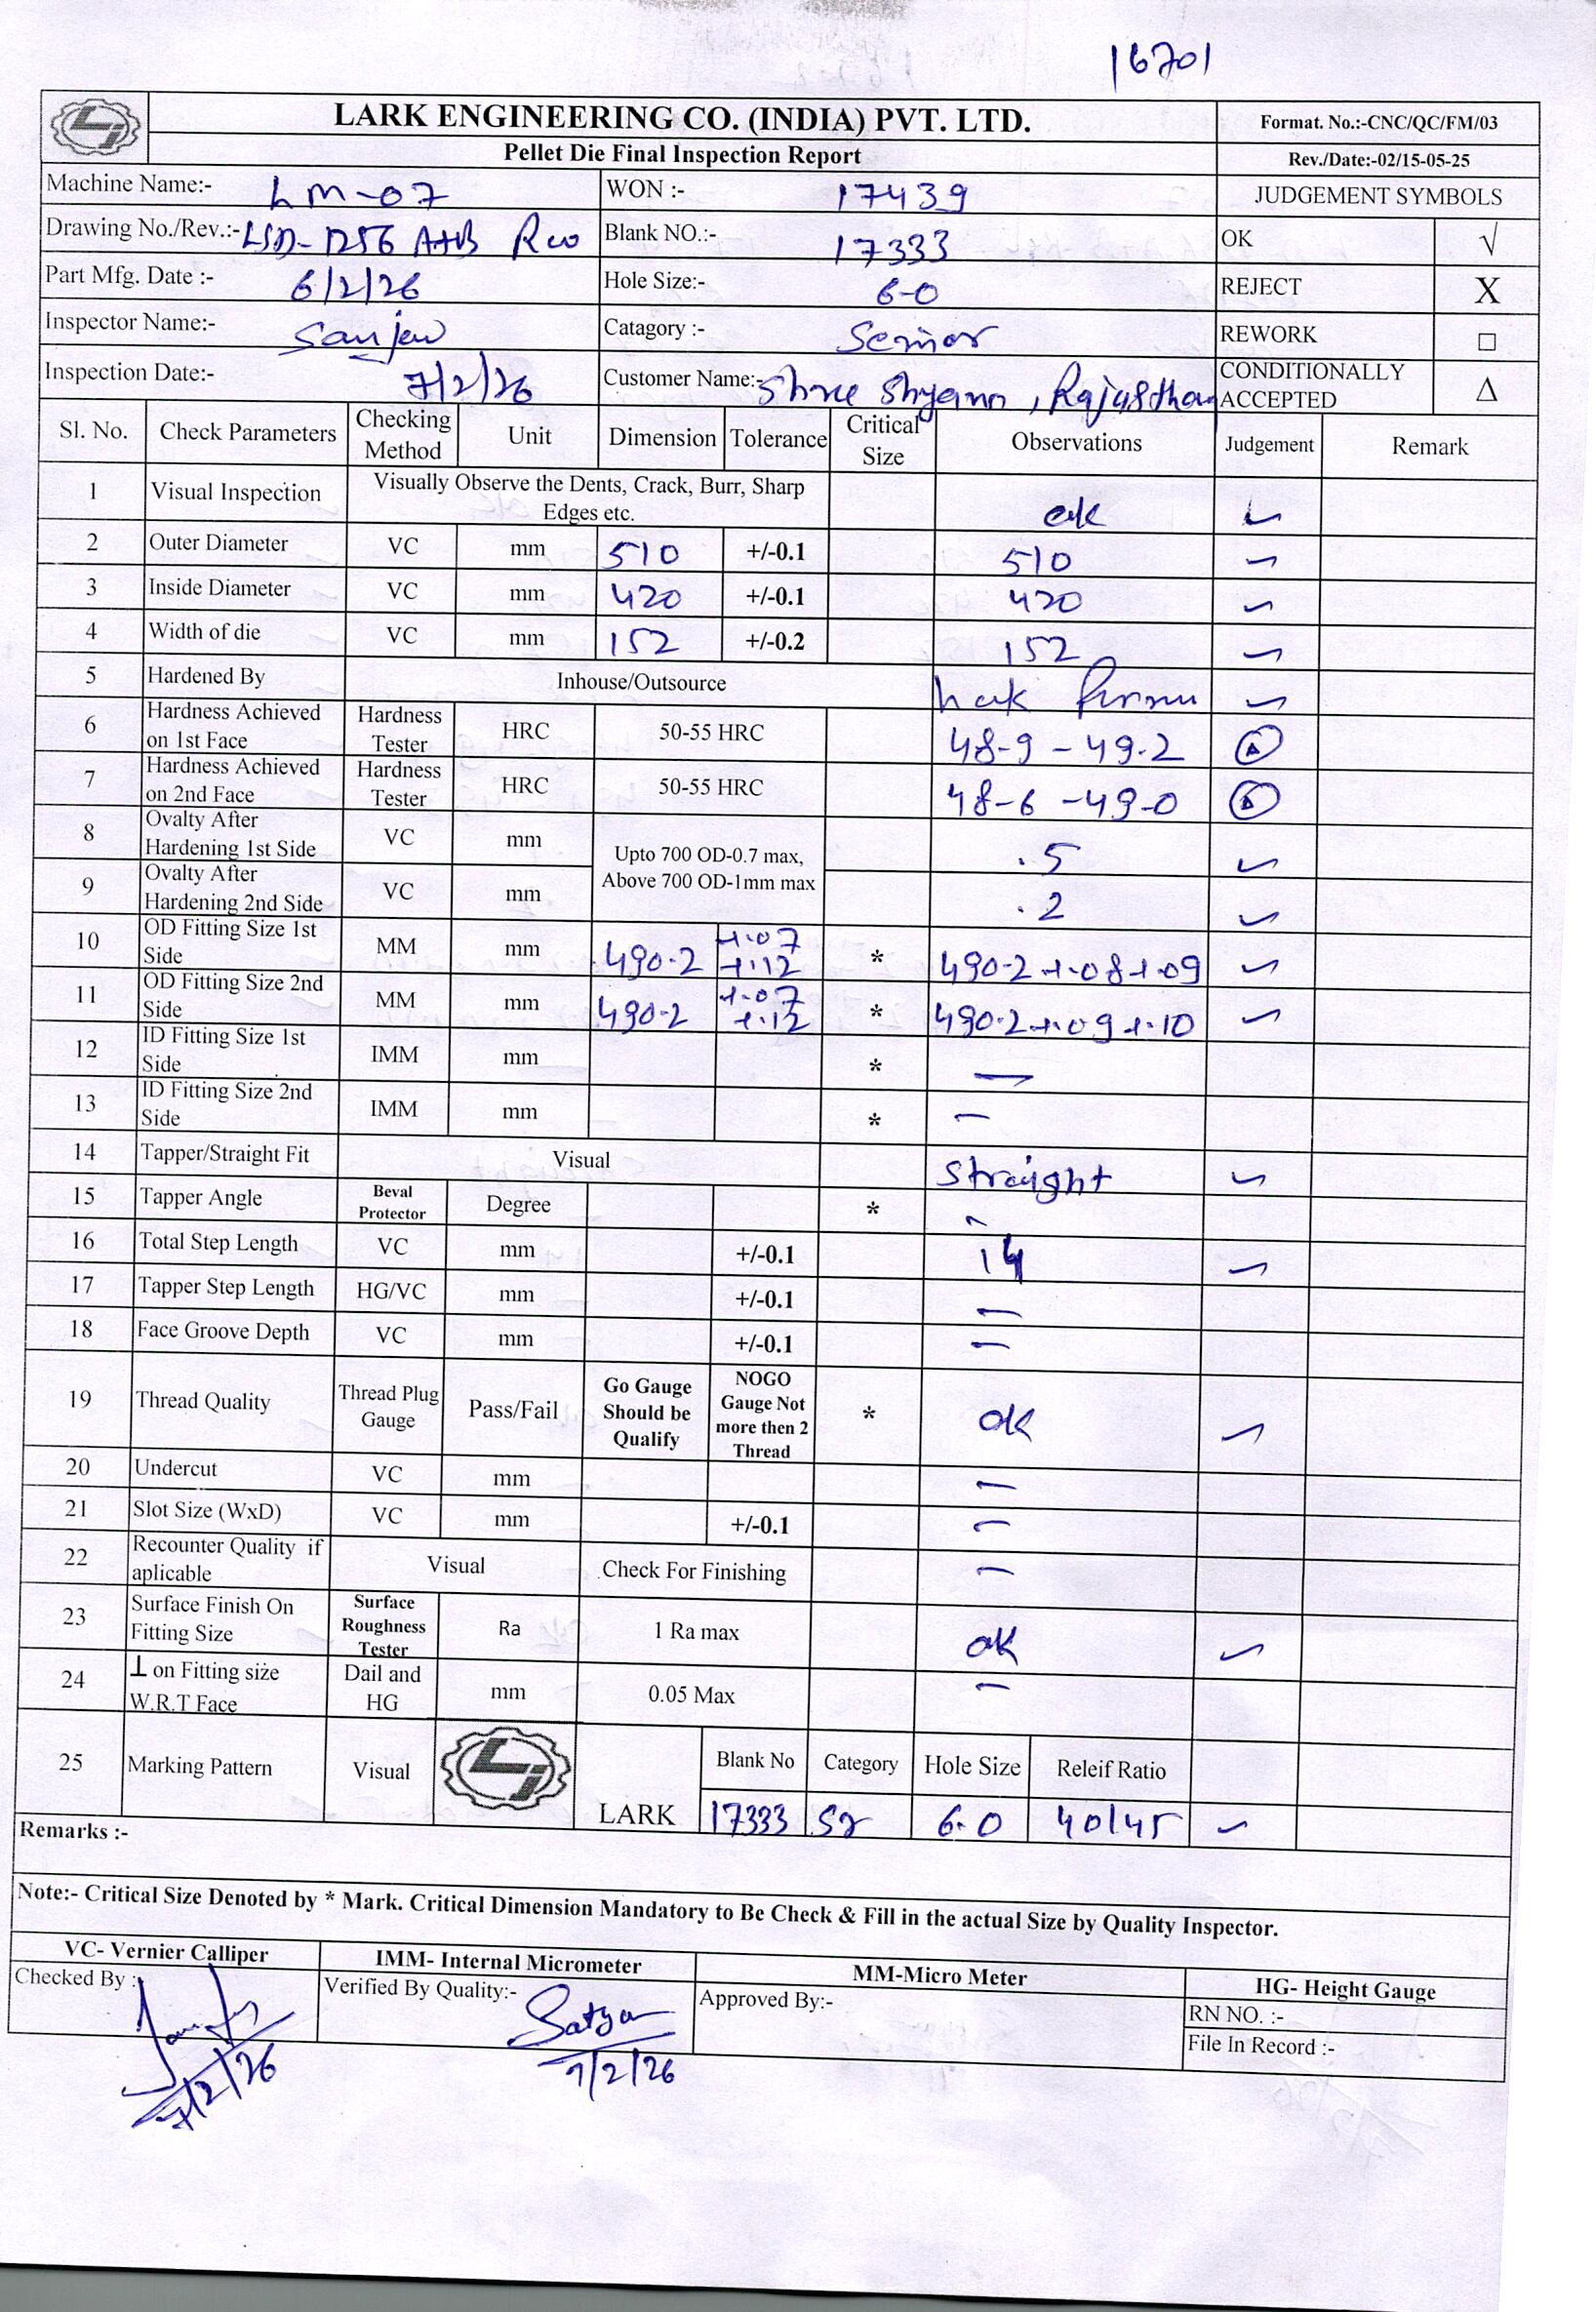 16701
LARK ENGINEERING CO. (INDIA) PVT. LTD.
Format. No.:-CNC/QC/FM/03
Pellet Die Final Inspection Report
Rev./Date:-02/15-05-25
Machine Name:- LM-07 WON :- 17439 JUDGEMENT SYMBOLS
Drawing No./Rev.:- LSD-1256 A+B Blank NO.:- 17333 OK √
Part Mfg. Date :- 6/2/26 Hole Size:- 6-0 REJECT X
Inspector Name:- Sanjeev Catagory :- Senior REWORK □
Inspection Date:- 7/2/26 Customer Name:- Shree Shyam, Rajasthan CONDITIONALLY ACCEPTED Δ
Sl. No. Check Parameters Checking Method Unit Dimension Tolerance Critical Size Observations Judgement Remark
1 Visual Inspection Visually Observe the Dents, Crack, Burr, Sharp Edges etc. ok ✓
2 Outer Diameter VC mm 510 +/-0.1 510 ✓
3 Inside Diameter VC mm 420 +/-0.1 420 ✓
4 Width of die VC mm 152 +/-0.2 152 ✓
5 Hardened By Inhouse/Outsource ✓
6 Hardness Achieved on 1st Face Hardness Tester HRC 50-55 HRC 48-9 - 49.2
7 Hardness Achieved on 2nd Face Hardness Tester HRC 50-55 HRC 48-6 - 49-0
8 Ovalty After Hardening 1st Side VC mm Upto 700 OD-0.7 max, Above 700 OD-1mm max .5 ✓
9 Ovalty After Hardening 2nd Side VC mm .2 ✓
10 OD Fitting Size 1st Side MM mm 490.2 +.07 +.12 * 490-2 +.08 +.09 ✓
11 OD Fitting Size 2nd Side MM mm 490-2 +.07 +.12 * 490.2 +.09 +.10 ✓
12 ID Fitting Size 1st Side IMM mm * —
13 ID Fitting Size 2nd Side IMM mm * —
14 Tapper/Straight Fit Visual Straight ✓
15 Tapper Angle Beval Protector Degree * —
16 Total Step Length VC mm +/-0.1 14 ✓
17 Tapper Step Length HG/VC mm +/-0.1 —
18 Face Groove Depth VC mm +/-0.1 —
19 Thread Quality Thread Plug Gauge Pass/Fail Go Gauge Should be Qualify NOGO Gauge Not more then 2 Thread * ok ✓
20 Undercut VC mm —
21 Slot Size (WxD) VC mm +/-0.1 —
22 Recounter Quality if aplicable Visual Check For Finishing —
23 Surface Finish On Fitting Size Surface Roughness Tester Ra 1 Ra max ok ✓
24 ⊥ on Fitting size W.R.T Face Dail and HG mm 0.05 Max —
25 Marking Pattern Visual LARK Blank No Category Hole Size Releif Ratio
17333 Sr 6.0 40/45 ✓
Remarks :-
Note:- Critical Size Denoted by * Mark. Critical Dimension Mandatory to Be Check & Fill in the actual Size by Quality Inspector.
VC- Vernier Calliper IMM- Internal Micrometer MM-Micro Meter HG- Height Gauge
Checked By : Verified By Quality:- Satya Approved By:- RN NO. :-
File In Record :-
7/2/26 7/2/26